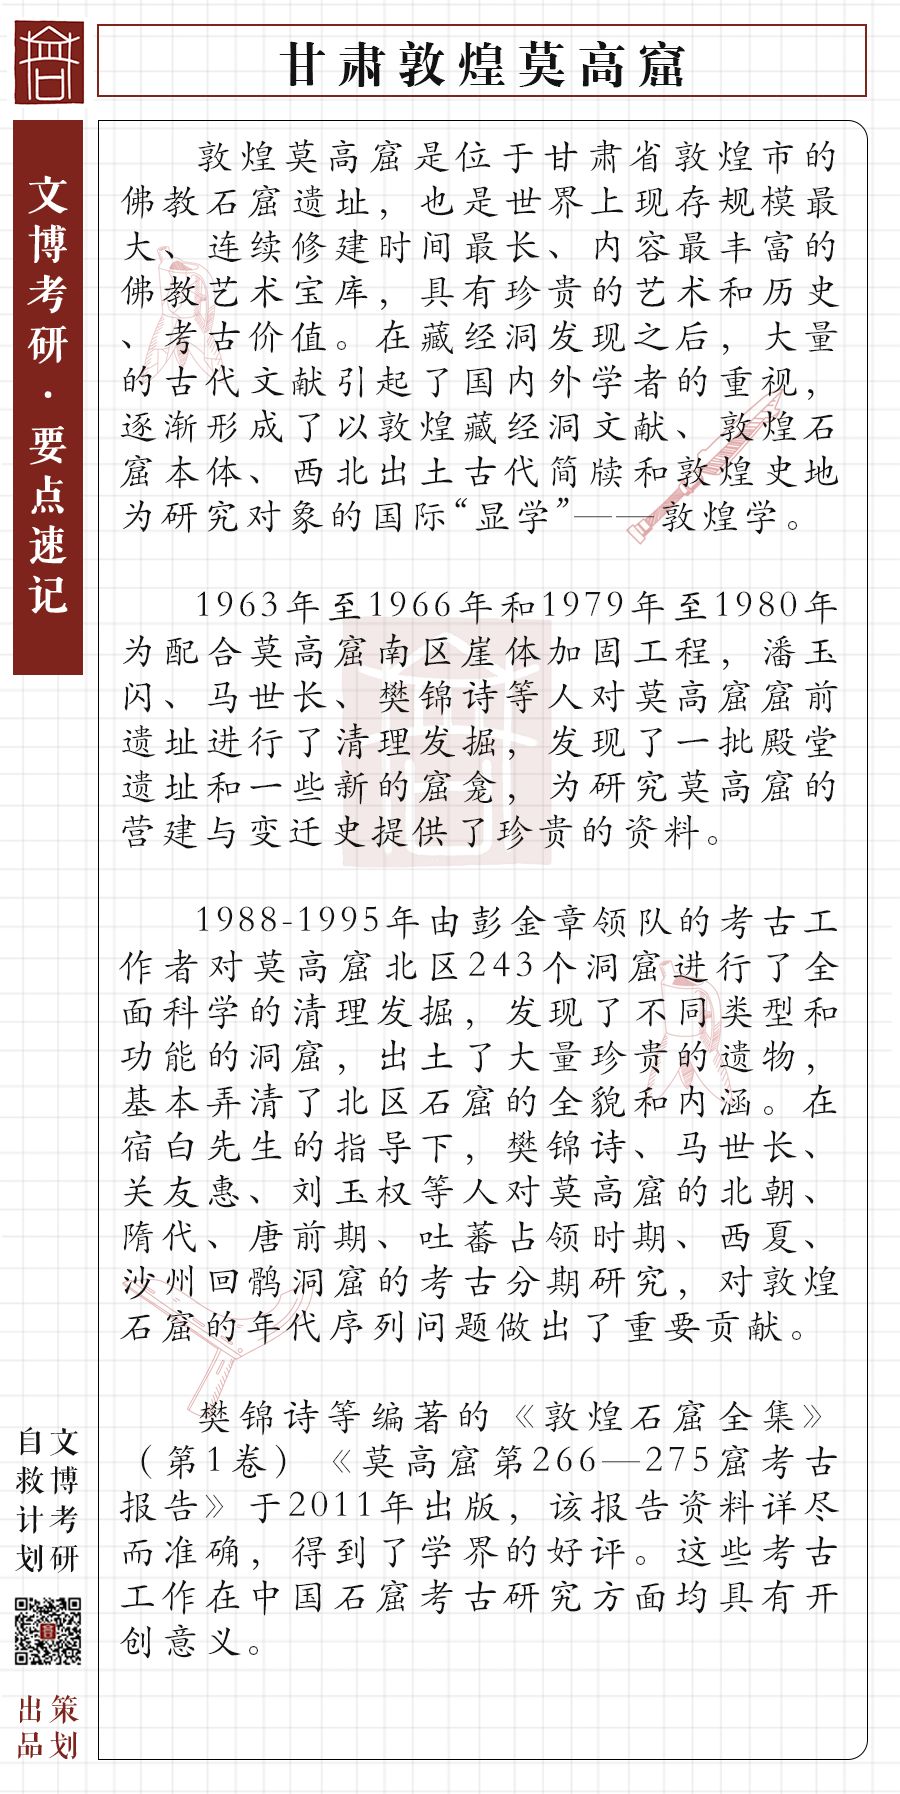 甘肃敦煌莫高窟
文博考研·要点速记
敦煌莫高窟是位于甘肃省敦煌市的
佛教石窟遗址，也是世界上现存规模最
大、连续修建时间最长、内容最丰富的
佛教艺术宝库，具有珍贵的艺术和历史
、考古价值。在藏经洞发现之后，大量
的古代文献引起了国内外学者的重视，
逐渐形成了以敦煌藏经洞文献、敦煌石
窟本体、西北出土古代简牍和敦煌史地
为研究对象的国际“显学”——敦煌学。
1963年至1966年和1979年至1980年
为配合莫高窟南区崖体加固工程，潘玉
闪、马世长、樊锦诗等人对莫高窟窟前
遗址进行了清理发掘，发现了一批殿堂
遗址和一些新的窟龛，为研究莫高窟的
营建与变迁史提供了珍贵的资料。
1988-1995年由彭金章领队的考古工
作者对莫高窟北区243个洞窟进行了全
面科学的清理发掘，发现了不同类型和
功能的洞窟，出土了大量珍贵的遗物，
基本弄清了北区石窟的全貌和内涵。在
宿白先生的指导下，樊锦诗、马世长、
关友惠、刘玉权等人对莫高窟的北朝、
隋代、唐前期、吐蕃占领时期、西夏、
沙州回鹘洞窟的考古分期研究，对敦煌
石窟的年代序列问题做出了重要贡献。
樊锦诗等编著的《敦煌石窟全集》
（第1卷）《莫高窟第266—275窟考古
报告》于2011年出版，该报告资料详尽
而准确，得到了学界的好评。这些考古
工作在中国石窟考古研究方面均具有开
创意义。
文博考研
自救计划
策划
出品